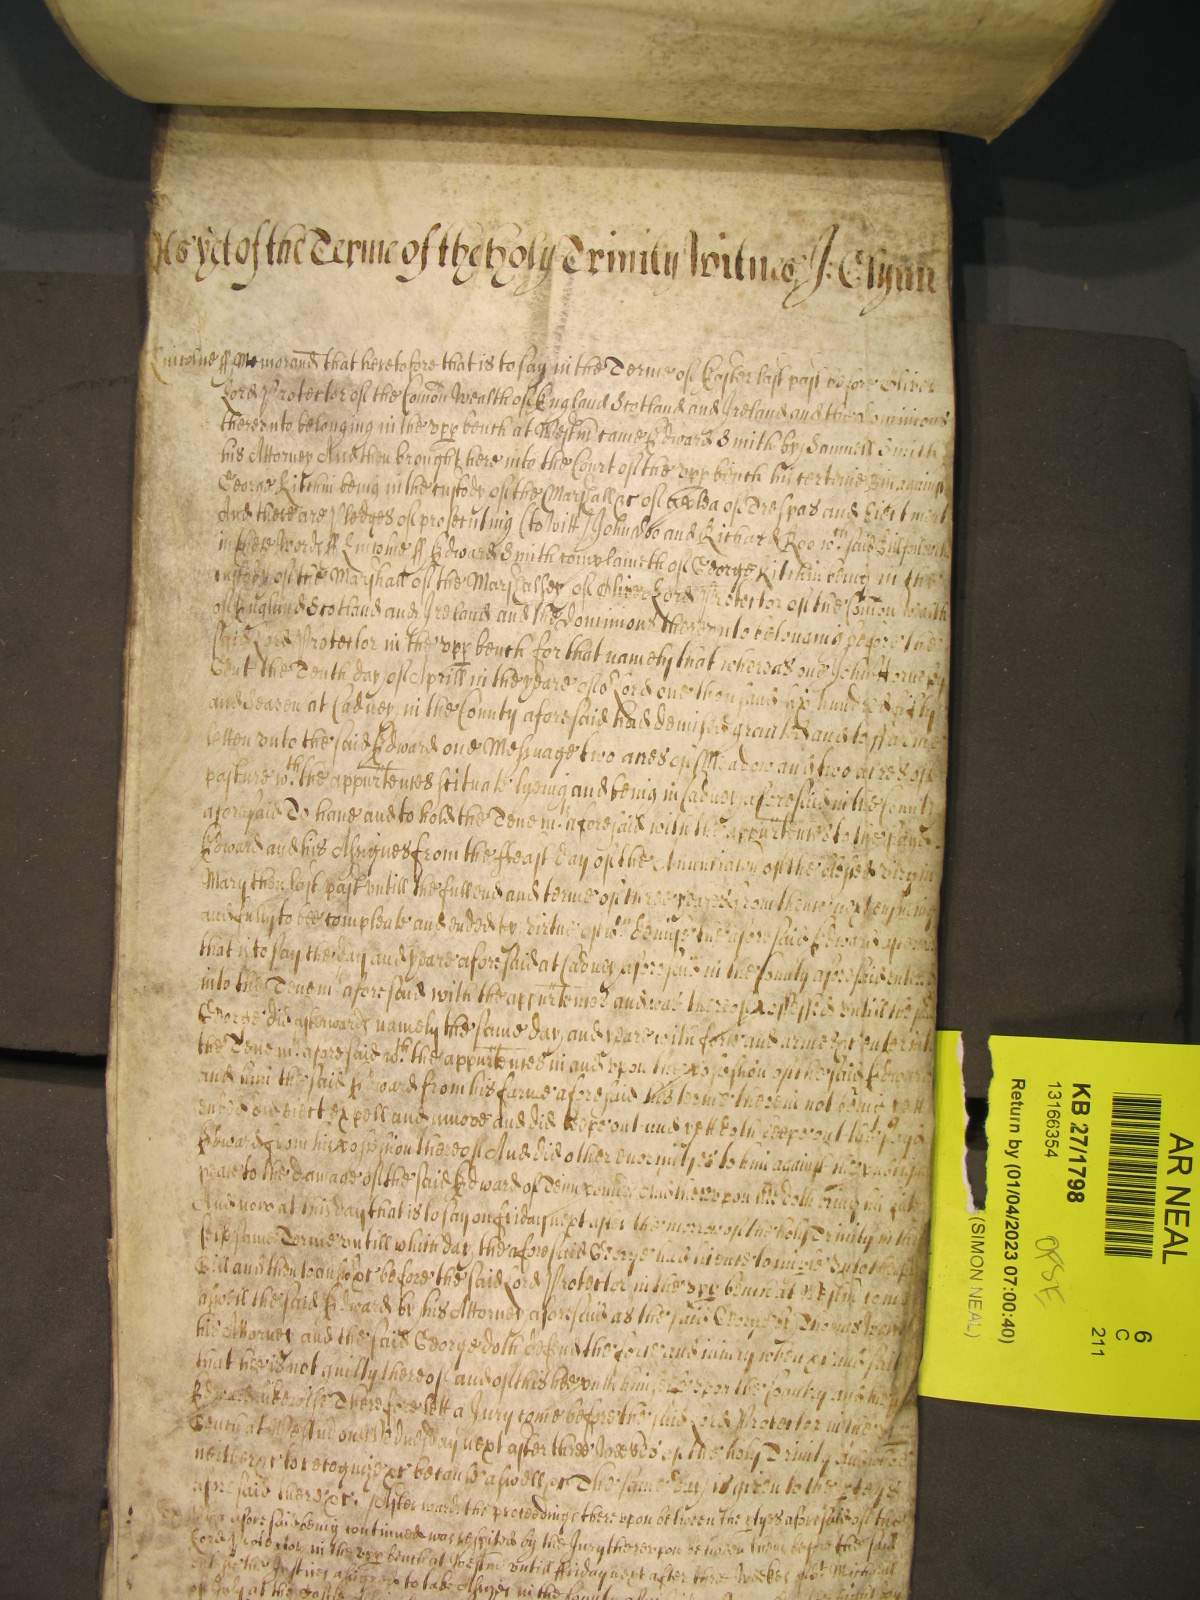 As yet of the Terme of the holy Trinity Witnes J: Glynn
Lincolne ss Memorand that heretofore that is to say in the Terme of Easter last past before Oliver
Lord Protector of the Comon Wealth of England Scotland and Ireland and the dominions
thereunto belonging in the upp bench at Westm came Edward Smith by Samuell Smith
his Attorney And then brought here into the Court of the upp bench his certeine Bill against
George Kitchin being in the custody of the Marshall &c of a plea of Trespas and Eiectment
And there are pledges of prosecuting (to Witt) John Doo and Richard Roo wch said Bill followeth
in these words ss Lincolne ss Edward Smith complaineth of George Kitchin being in the
custody of the Marshall of the Marshalsey of Oliver Lord Protector of the Comon wealth
of England Scotland and Ireland and the dominions thereunto belonging before the
said Lord Protector in the upp bench for that namely that whereas one John
Gent the Tenth day of Aprill in the yeare of or Lord one thousand six hundred fifty
and seaven at Cadney in the County aforesaid had demised graunted and to farme
letten unto the said Edward one Messuage two acres of Meadow and two acres of
pasture wth the appurtences scituate lyeing and being in Cadney aforesaid in the County
aforesaid To have and to hold the Tenemts aforesaid with the appurtences to the sayd
Edward and his Assignes from the ffeast day of the Anunciacon of the blessed virgin
Mary then last past untill the full end and terme of three yeares from thence next ensueing
and fully to bee compleate and ended by virtue of wch demise the aforesaid Edward
that is to say the day and yeare aforesaid at Cadney aforesaid in the County aforesaid entered
into the Tenemts aforesaid with the appurtences and was thereof possessed untill the said
George did afterwards namely the same day and yeare with force and armes &c enter into
the Tenemts aforesaid wth the appurtences in and upon the possession of the said Edward
and him the said Edward from his farme aforesaid his terme therein not being yett
ended did eiect expell and amove and did keepe out and yett doth keepe out the said
Edward from his possession thereof And did other enormityes to him against the publique
peace to the damage of the said Edward of Tenn pounds And thereupon hee doth bring his suite
And now at this day that is to say on friday next after the morrow of the holy Trinity in this
selfe same Terme untill which day the aforesaid George had licence to imparle to the aforesaid
Bill and then to answer &c before the said Lord Protector in the upp bench at Westm come
aswell the said Edward by his Attorney aforesaid as the said George by Thomas
his Attorney and the said George doth defend the force and iniury when &c and saith
that he is not guilty thereof and of this hee puth himselfe upon the Country and the said
Edward likewise Therefore lett a Jury come before the said Lord Protector in the upp
bench at Westm on Wednesday next after three weekes of the holy Trinity and who
neither &c to recognize &c because aswell &c The same day is given to the ptyes
aforesaid there &c Afterwards the proceedings thereupon between the ptyes aforesaid of the
plea aforesaid being continued was respited by the Jury thereupon between them before the said
Lord Protector in the upp bench at Westm untill ffriday next after three Weekes of St Michaell
the Justices assigned to take Assizes in the County

AR NEAL
KB 27/1798
13166354
Return by (01/04/2023 07:00:40)
(SIMON NEAL)
6
C
211